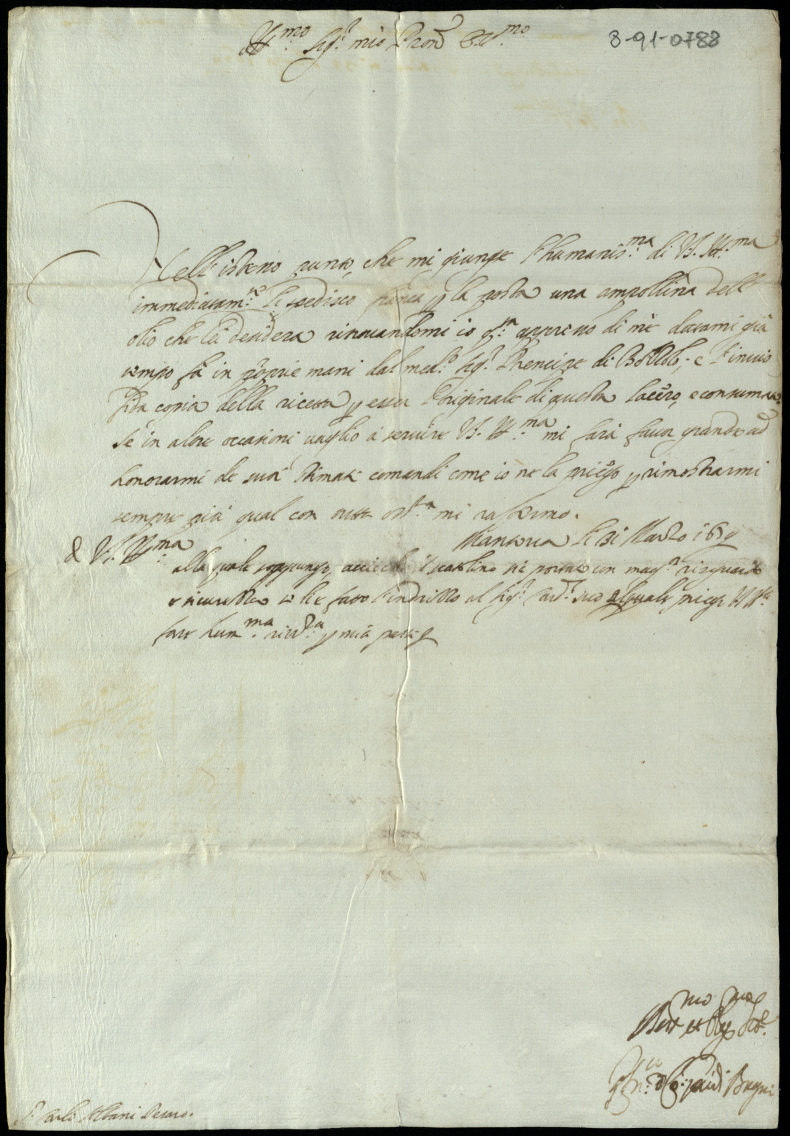 Ill.mo Sig.r mio Pron Col.mo
8-91-0788
Nell'istesso punto che mi giunge l'humanis.ma di V.S. Ill.ma
immediatam.te le spedisco per la posta una ampollina dell'
olio che lei desidera ritrovandomi io appresso di me datami già
tempo fà in proprie mani dal med.o Sig.r Prencipe di Bozzolo, e l'invio
copia della ricetta p esser l'originale di questa lacero, e consumato
Se in altre occasioni vaglio a servire V.S. Ill.ma mi farà favor grande ad
honorarmi de suoi stimati comandi come io ne la priego p rimostrarmi
sempre più qual con tutto oss.a mi raffermo.
Mantova li 31 Marzo 16
D V.S. Ill.ma
alla quale soggiungo, acciò che il scattolino sii portato con mag.r riguardo
e sicurezza le hò fatto l'indrizzo al Sig.r suo al quale priego V.S. Ill.ma
fare hum.ma riv.a p mia parte
Carlo Albani Pesaro.